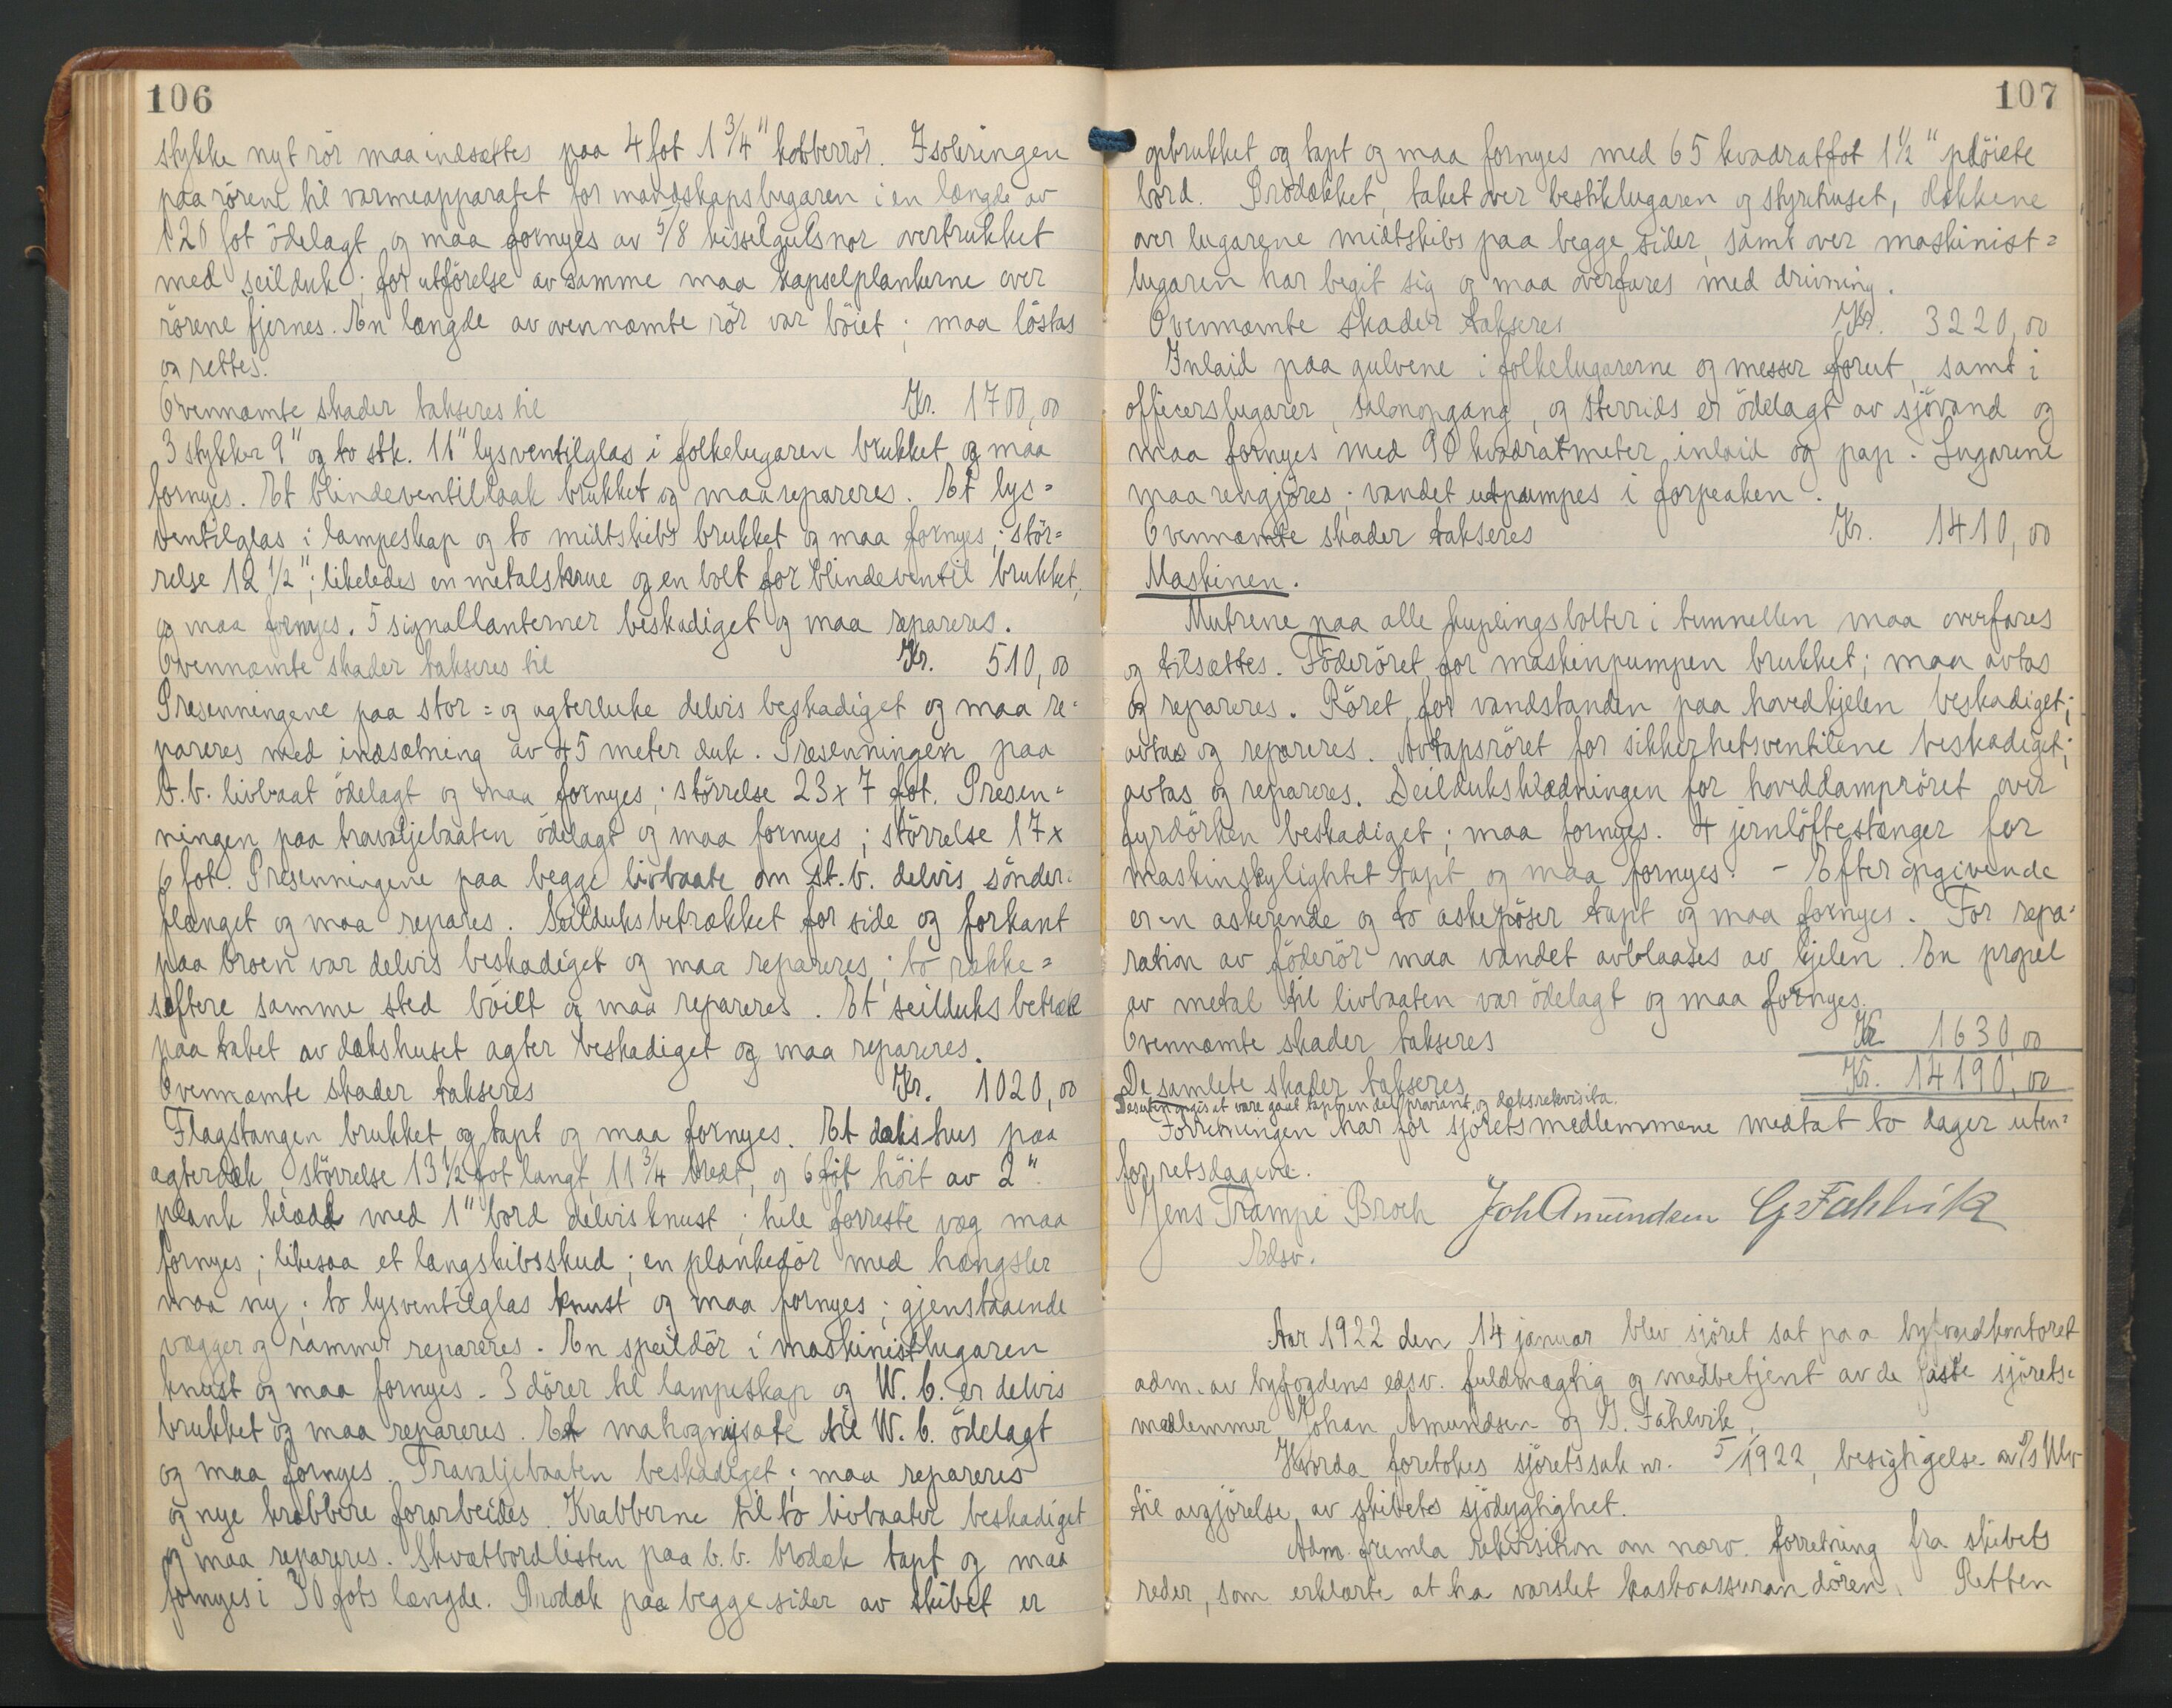 106
stykke nyt rör maa indsættes paa 4 fot 1 3/4" kobberrör. Isoleringen
paa rörene til varmeapparatet for mandskapslugaren i en længde av
120 fot ödelagt og maa fornyes av 5/8 kisselgulsnor overtrukket
med seilduk; for utförelse av samme maa kapselplankerne over
rörene fjernes. En længde av ovennævnte rör var böiet; maa löstas
og rettes.
Ovennævnte skader takseres til Kr. 1700,00
3 stykker 9" og to stk. 11" lysventilglas i folkelugaren brukket og maa
fornyes. Et blindeventillaak brukket og maa repareres. Et lys=
ventilglas i lampeskap og to midtskibs brukket og maa fornyes; stör=
relse 12 1/2"; likeledes en metalskrue og en bolt for blindeventil brukket,
og maa fornyes. 5 signallanterner beskadiget og maa repareres.
Ovennævnte skader takseres til Kr. 510,00
Presenningene paa stor= og agterluke delvis beskadiget og maa re=
pareres med indsætning av 45 meter duk. Presenningen paa
b.b. livbaat ödelagt og maa fornyes; störrelse 23 x 7 fot. Presen=
ningen paa travaljebaaten ödelagt og maa fornyes; störrelse 17 x
6 fot. Presenningene paa begge livbaate om st.b. delvis sönder=
flænget og maa repares. Seilduksbetrækket for side og forkant
paa broen var delvis beskadiget og maa repareres; to række=
støttere samme sted böiet og maa repareres. Et seilduks betræk
paa taket av dækshuset agter beskadiget og maa repareres.
Ovennævnte skader takseres Kr. 1020,00
Flagstangen brukket og tapt og maa fornyes. Et dækshus paa
agterdæk, störrelse 13 1/2 fot langt, 11 3/4 bredt, og 6 fot höit av 2"
plank klædd med 1" bord delvis knust; hele forreste væg maa
fornyes; likesaa et langskibsskud; en plankedör med hængsler
maa ny; to lysventilglas knust og maa fornyes; gjenstaaende
vægger og rammer repareres. En speildör i maskinistlugaren
knust og maa fornyes. 3 dörer til lampeskap og W.C. er delvis
brukket og maa repareres. Et mahognysæte til W.C. ödelagt
og maa fornyes. Travaljebaaten beskadiget; maa repareres
og nye krabbere forarbeides. Krabberne til to livbaater beskadiget
og maa repareres. Skvætbordlisten paa b.b. brodæk tapt og maa
fornyes i 30 fots længde. Brodæk paa begge sider av skibet er
107
opbrukket og tapt og maa fornyes med 65 kvadratfot 1 1/2" plöiete
bord. Brodækket, taket over bestiklugaren og styrehuset, dækkene
over lugarene midtskibs paa begge sider, samt over maskinist=
lugaren har begit sig og maa overfares med drivning.
Ovennævnte skader takseres Kr. 3220,00
Inlaid paa gulvene i folkelugarerne og messer forut, samt i
officerslugarer, salonopgang, og sterrids er ödelagt av sjövand og
maa fornyes med 90 kvadratmeter inlaid og pap. Lugarene
maa rengjöres; vandet utpumpes i forpeaken.
Ovennævnte skader takseres Kr. 1410,00
Maskinen.
Mutrene paa alle kuplingsbolter i tunnellen maa overfares
og tilsættes. Föderöret for maskinpumpen brukket; maa avtas
og repareres. Röret for vandstanden paa hovedkjelen beskadiget;
avtas og repareres. Avtapsröret for sikkerhetsventilene beskadiget;
avtas og repareres. Seilduksklædningen for hoveddampröret over
fyrdörken beskadiget; maa fornyes. 4 jernlöftestænger for
maskinskylightet tapt og maa fornyes. - Efter opgivende
er en askerende og to askepöser tapt og maa fornyes. For repa=
ration av föderör maa vandet avblaases av kjelen. En propel
av metal til livbaaten var ödelagt og maa fornyes.
Ovennævnte skader takseres Kr 1630,00
De samlete skader takseres Kr. 14190,00
Desuten opgis at være gaat tapt en del proviant og dæksrekvisita.
Forretningen har for sjöretsmedlemmene medtat to dager uten=
for retsdagene.
Jens Trampe Broch Joh Amundsen G Fahlvik
Edsv.
Aar 1922 den 14 januar blev sjöret sat paa byfogedkontoret
adm. av byfogdens edsv. fuldmægtig og medbetjent av de faste sjörets=
medlemmer Johan Amundsen og G. Fahlvik.
Hvorda foretokes sjöretssak nr. 5/1922, besigtigelse av D/S Ulv
til avgjörelse av skibets sjödygtighet.
Adm. fremla rekvisition om nærv. forretning fra skibets
reder, som erklærte at ha varslet kaskoassurandören. Retten